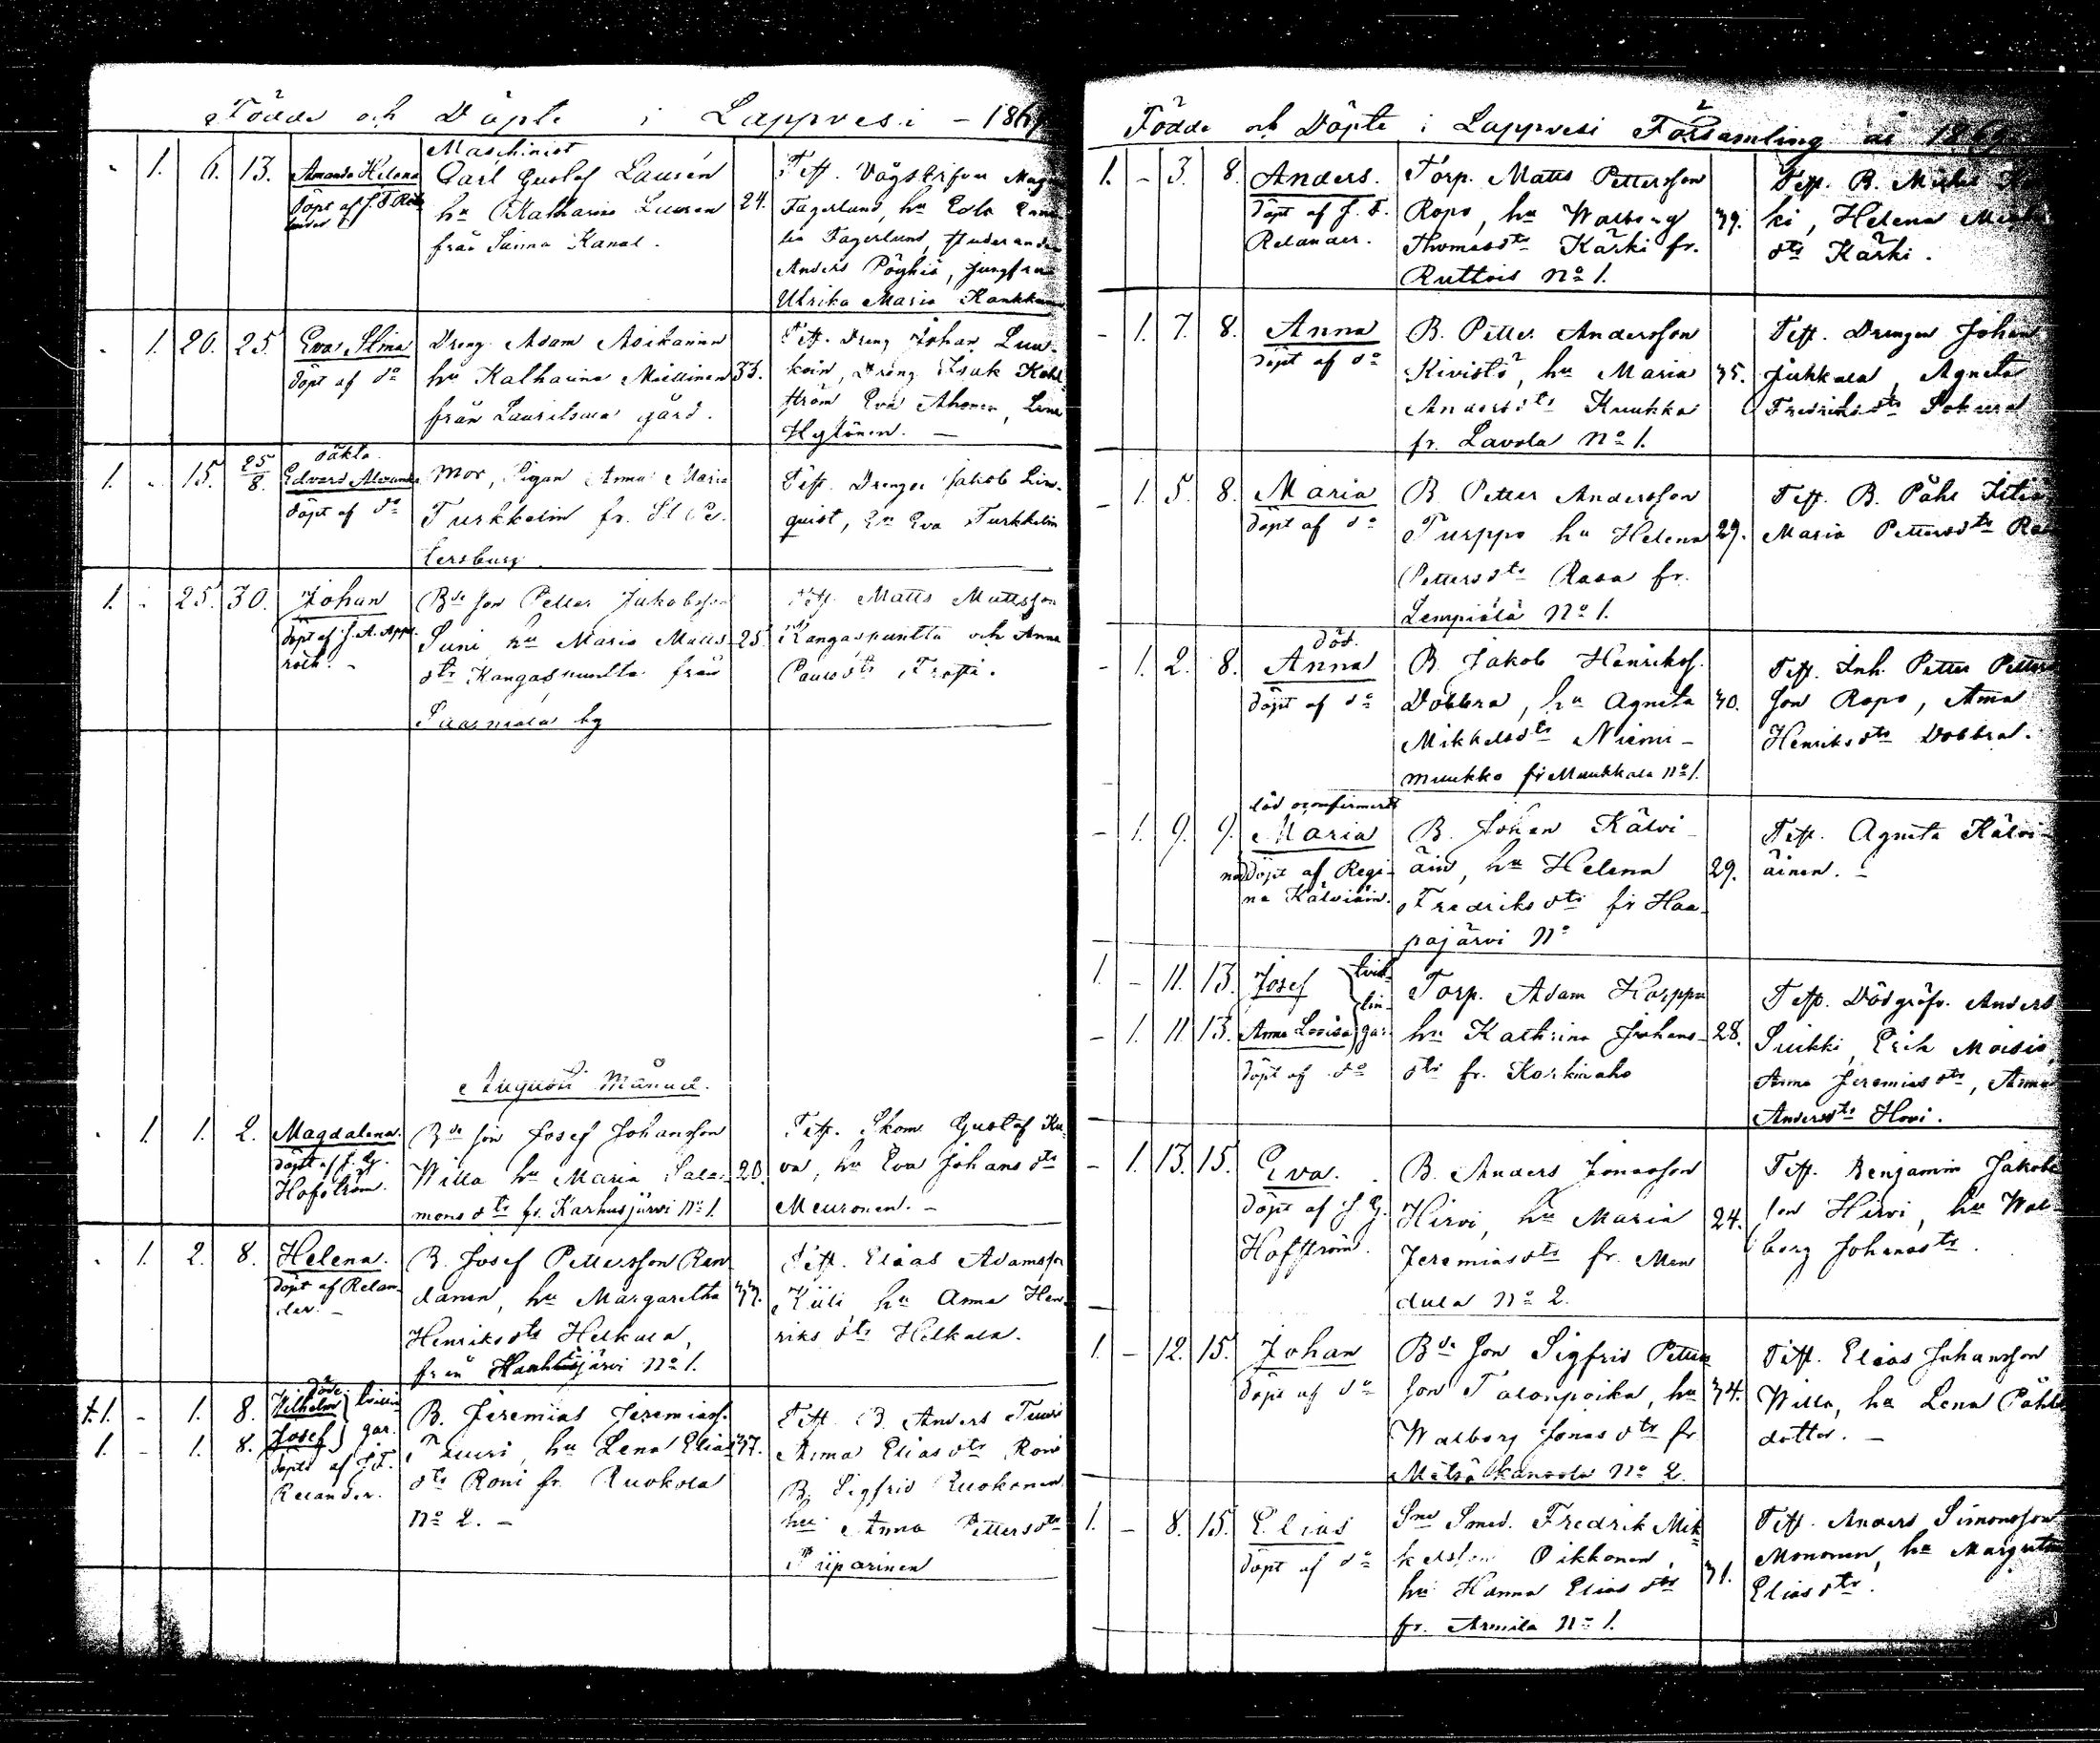 Födde och Döpte i Lappvesi - 1869
- 1. 6. 13. Amanda Helena
Döpt af J. F. Relander
Maschinist
Carl Gustaf Lausén
hu Katharina Lausen 24.
från Saima Kanal.
Test. Vågskrifvar
Fagerlund, hu
Fagerlund, Studeranden
Anders Pöyhiä, Jungfru
Ulrika Maria
- 1. 20. 25. Eva Stina
döpt af do
Dreng Adam Asikainen
hu Katharina 33.
från Lauritsala gård.
Test. Dreng Johan Luu-
koin, Dreng Isak Kohl-
ström Eva Ahonen, Lena
Hytönen. -
1. - 15. 25/8. oäkta
Edvard Alexander
döpt af do
Mor, Pigan Anna Maria
Turkkelin fr. St Pe-
tersburg.
Test. Drengen Jakob Lin-
quist, Eva Turkkelin
1. - 25. 30. Johan
döpt af J. A. Appel-
roth. -
Bde son Petter Jakobsson
Suni hu Maria Matts 25.
dtr Kangaspuntta från
by
Test. Matts Mattsson
Kangaspuntta och Anna
Paulsdtr
Augusti Månad.
- 1. 1. 2. Magdalena.
döpt af J. G.
Hofström.
Bde son Josef Johansson
Willa hu Maria Salo- 20.
mons dtr fr. Karhusjärvi No 1.
Test. Skom Gustaf Ku-
va, hu Eva Johans dtr
Meuronen. -
- 1. 2. 8. Helena.
döpt af Relan-
der. -
B. Josef Pettersson Ran-
danen, hu Margaretha
Henriks dtr Helkala,
från järvi No 1.
Test. Elias Adamsson
Kiili hu Anna Hen-
riks dtr Helkala.
1. - 1. 8. döde.
Vilhelm } tvillin
1. - 1. 8. Josef } gar.
döpte af J. F.
Relander.
B. Jeremias Jeremiass.
Tuuri, hu Lena Elias 37.
dtr Roni fr. Ruohola
No 2. -
Test. B. Anders Tuuri
Anna Elias dtr Roni
B. Sigfrid Ruokonen
hu Anna Petters dtr
Piiparinen
Födde och Döpte i Lappvesi Församling år 1869
1. - 3. 8. Anders.
Döpt af J. F.
Relander.
Torp. Matts Pettersson
Ropo, hu Walborg 39.
Thomasdtr Kärki fr.
Ruttois No 1.
Test. B. Mickel
ki, Helena
dtr Kärki.
- 1. 7. 8. Anna
döpt af do
B. Petter Andersson
Kivistö, hu Maria 35.
Anders dtr Kuukka
fr. Lavola No 1.
Test. Drengen Johan
Jukkala, Agneta
Fredriks dtr Sokura
- 1. 5. 8. Maria
döpt af do
B. Petter Andersson
Turppo hu Helena 29.
Petters dtr Rasa fr.
Lempiälä No 1.
Test. B. Påhl
Maria Petters dtr
- 1. 2. 8. död.
Anna
döpt af do
B. Jakob Henrikss.
Dobbra, hu Agneta 30.
Mikkels dtr Niemi-
muukko fr Muukkala No 1.
Test. Inh. Petter Petters
son Ropo, Anna
Henriks dtr Dobbra.
- 1. 9. 9. död oconfirmerad
Maria
nöddöpt af Regi-
na Kälviäin.
B. Johan Kälvi-
äin, hu Helena 29.
Fredriks dtr fr Haa-
pajärvi No
Test. Agneta Kälvi-
äinen. -
1. - 11. 13. Josef } tvil-
lin-
- 1. 11. 13. Anna Lovisa } gar.
döpt af do
Torp. Adam Horppu
hu Kathrina Johans- 28.
dtr fr. Korkiaho
Test. Dödgräfv. Anders
Suikki, Erik Moisio,
Anna Jeremias dtr, Anna
Andersdtr Hovi.
- 1. 13. 15. Eva.
döpt af J. G.
Hofström.
B. Anders Jonasson
Hirvi, hu Maria 24.
Jeremias dtr fr. Men
dula No 2.
Test. Benjamin Jakobs
son Hirvi, hu Wal-
borg Johansdtr.
1. - 12. 15. Johan
döpt af do
Bde son Sigfrid Petters
son Talonpoika, hu 34.
Walborg Jonas dtr fr
Mätsäkansola No 2.
Test. Elias Johansson
Willa, hu Lena Påhls
dotter. -
1. - 8. 15. Elias
döpt af do
Sne Smed. Fredrik Mik-
kelsson Oikkonen,
hu Hanna Elias dtr 31.
fr. Armila No 1.
Test. Anders Simonsson
Mononen, hu Margeta
Elias dtr.